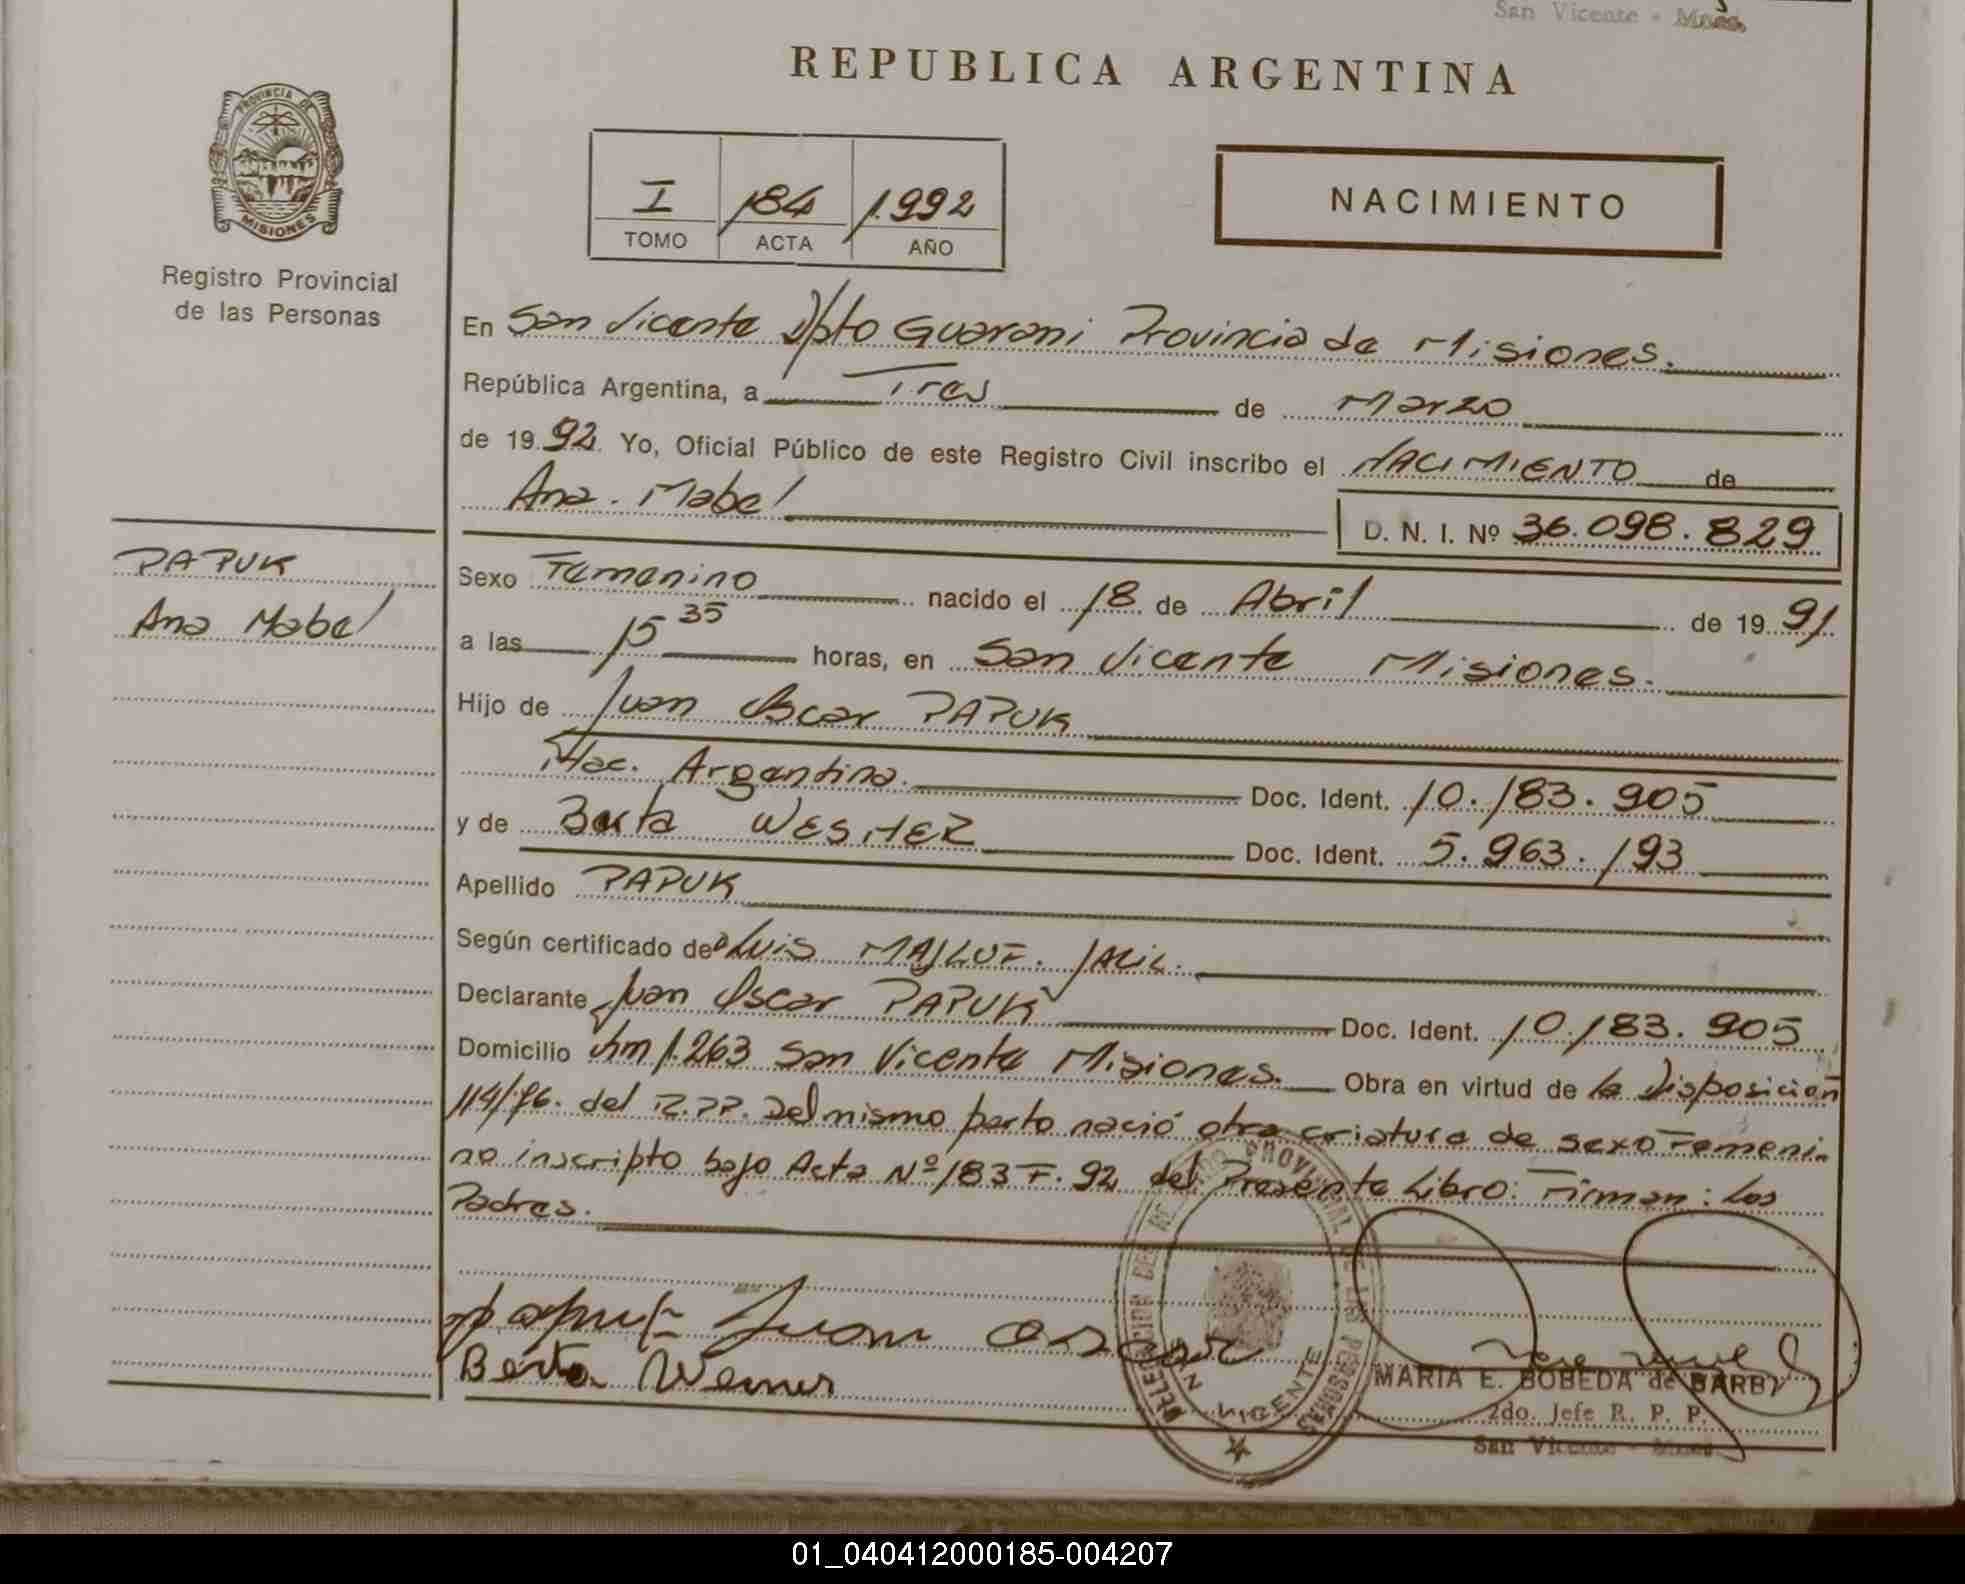 San Vicente - Mnes.
REPUBLICA ARGENTINA
PROVINCIA DE MISIONES
Registro Provincial
de las Personas
I 184 1.992
TOMO ACTA AÑO
NACIMIENTO
En San Vicente Dpto Guarani Provincia de Misiones.
República Argentina, a Tres de Marzo
de 1992. Yo, Oficial Público de este Registro Civil inscribo el NACIMIENTO de
Ana. Mabel D. N. I. Nº 36.098.829
PAPUK
Ana Mabel
Sexo Femenino nacido el 18 de Abril de 1991.
a las 15 35 horas, en San Vicente Misiones.
Hijo de Juan Oscar PAPUK
Nac. Argentina. Doc. Ident. 10.183.905
y de Berta WESNER Doc. Ident. 5.963.193
Apellido PAPUK
Según certificado de Luis MAJLUF. JALIL.
Declarante Juan Oscar PAPUK Doc. Ident. 10.183.905
Domicilio km 1.263 San Vicente Misiones. Obra en virtud de la Disposición
114/76. del R.P.P. Del mismo parto nació otra criatura de sexo Femeni-
no inscripto bajo Acta Nº 183 F. 92 del Presente Libro: Firman: Los
Padres.
Papuk Juan Oscar
Berta Wesner
DELEGACION DEL REGISTRO PROVINCIAL DE LAS PERSONAS
SAN VICENTE
MARIA E. BOBEDA de BARBY
2do. Jefe R. P. P.
San Vicente - Mnes
01_040412000185-004207